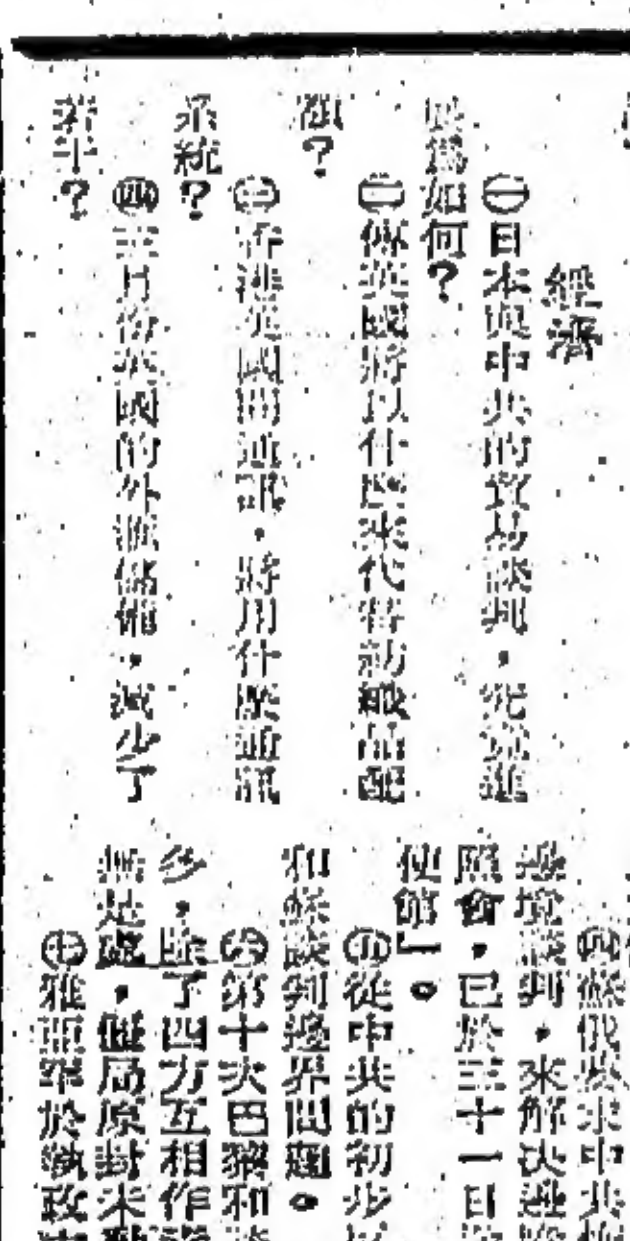 經濟
㊀日本與中共的貿易談判，究竟進
展爲如何？
㊁傳英國將以什麽來代替紡織品配
額？
㊂香港英國間通訊，將用什麽通訊
系統？
㊃三月份英國的外滙儲備，減少了
若干？
㊃蘇俄要求中共恢
邊境談判，來解決邊
照會，已於三十一日
使館」。
㊄從中共的初步
和蘇談判邊界問題。
㊅第十次巴黎和談
多，除了四方互相作
無是處，僵局原封未動
㊆雅亞罕於執政